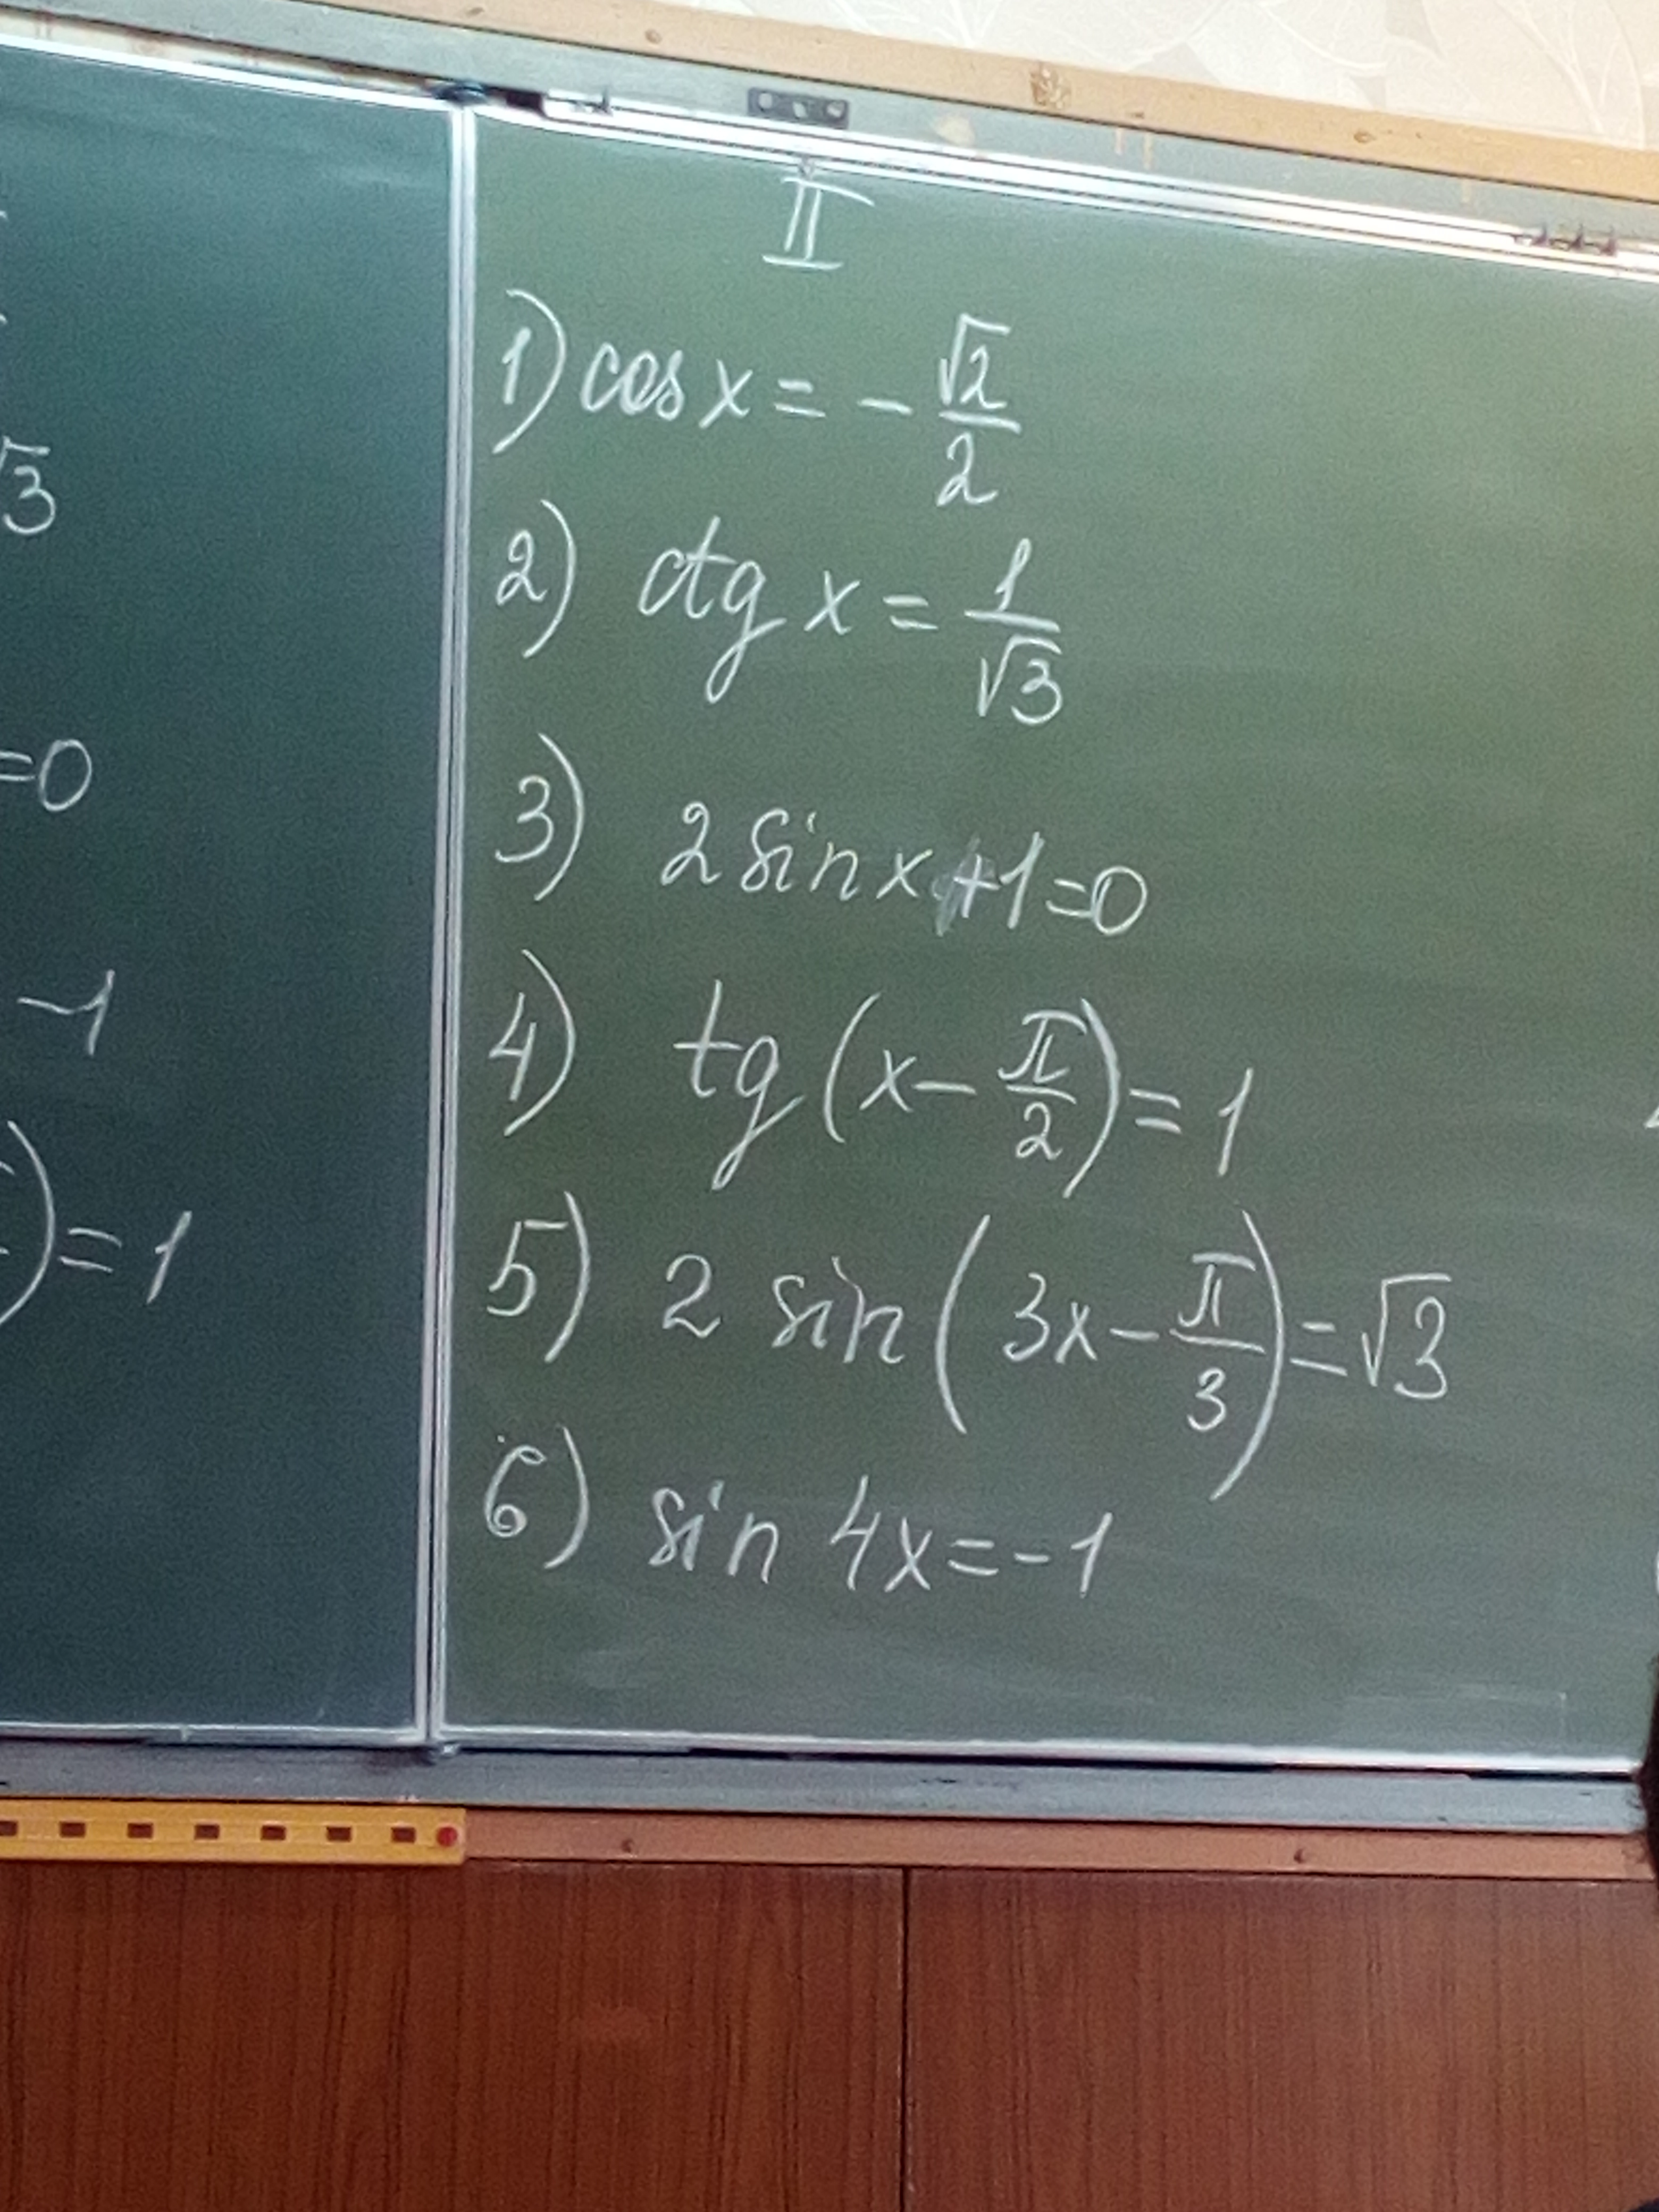 √3
=0
-1
)=1
II
1) cos x = - √2/2
2) ctg x = 1/√3
3) 2 sin x + 1 = 0
4) tg (x - π/2) = 1
5) 2 sin (3x - π/3) = √3
6) sin 4x = -1